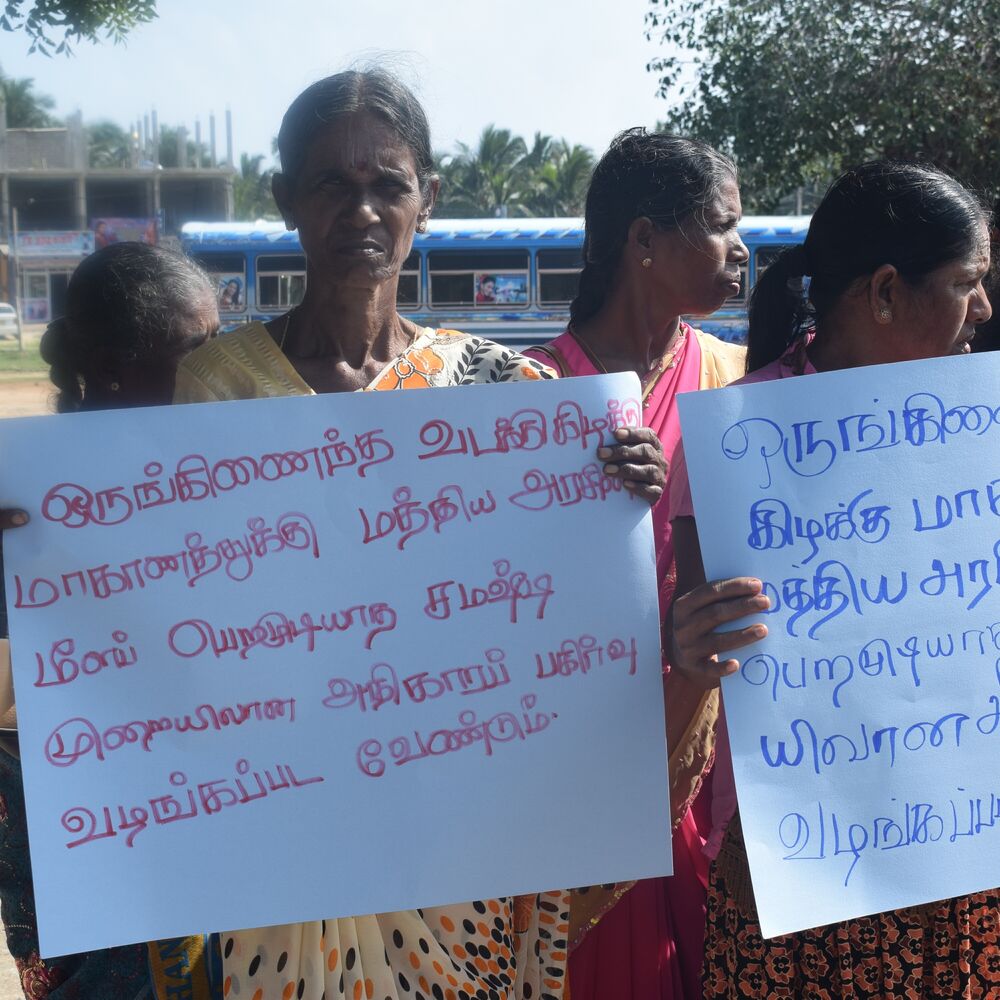 ஒருங்கிணைந்த வடக்கு கிழக்கு
மாகாணத்துக்கு மத்திய அரசின்
மீளப் பெறமுடியாத சமஷ்டி
முறையிலான அதிகாரப் பகிர்வு
வழங்கப்பட வேண்டும்.
ஒருங்கிணை
கிழக்கு மாகா
மத்திய அரசி
பெறமுடியாத
யிலான அ
வழங்கப்பட